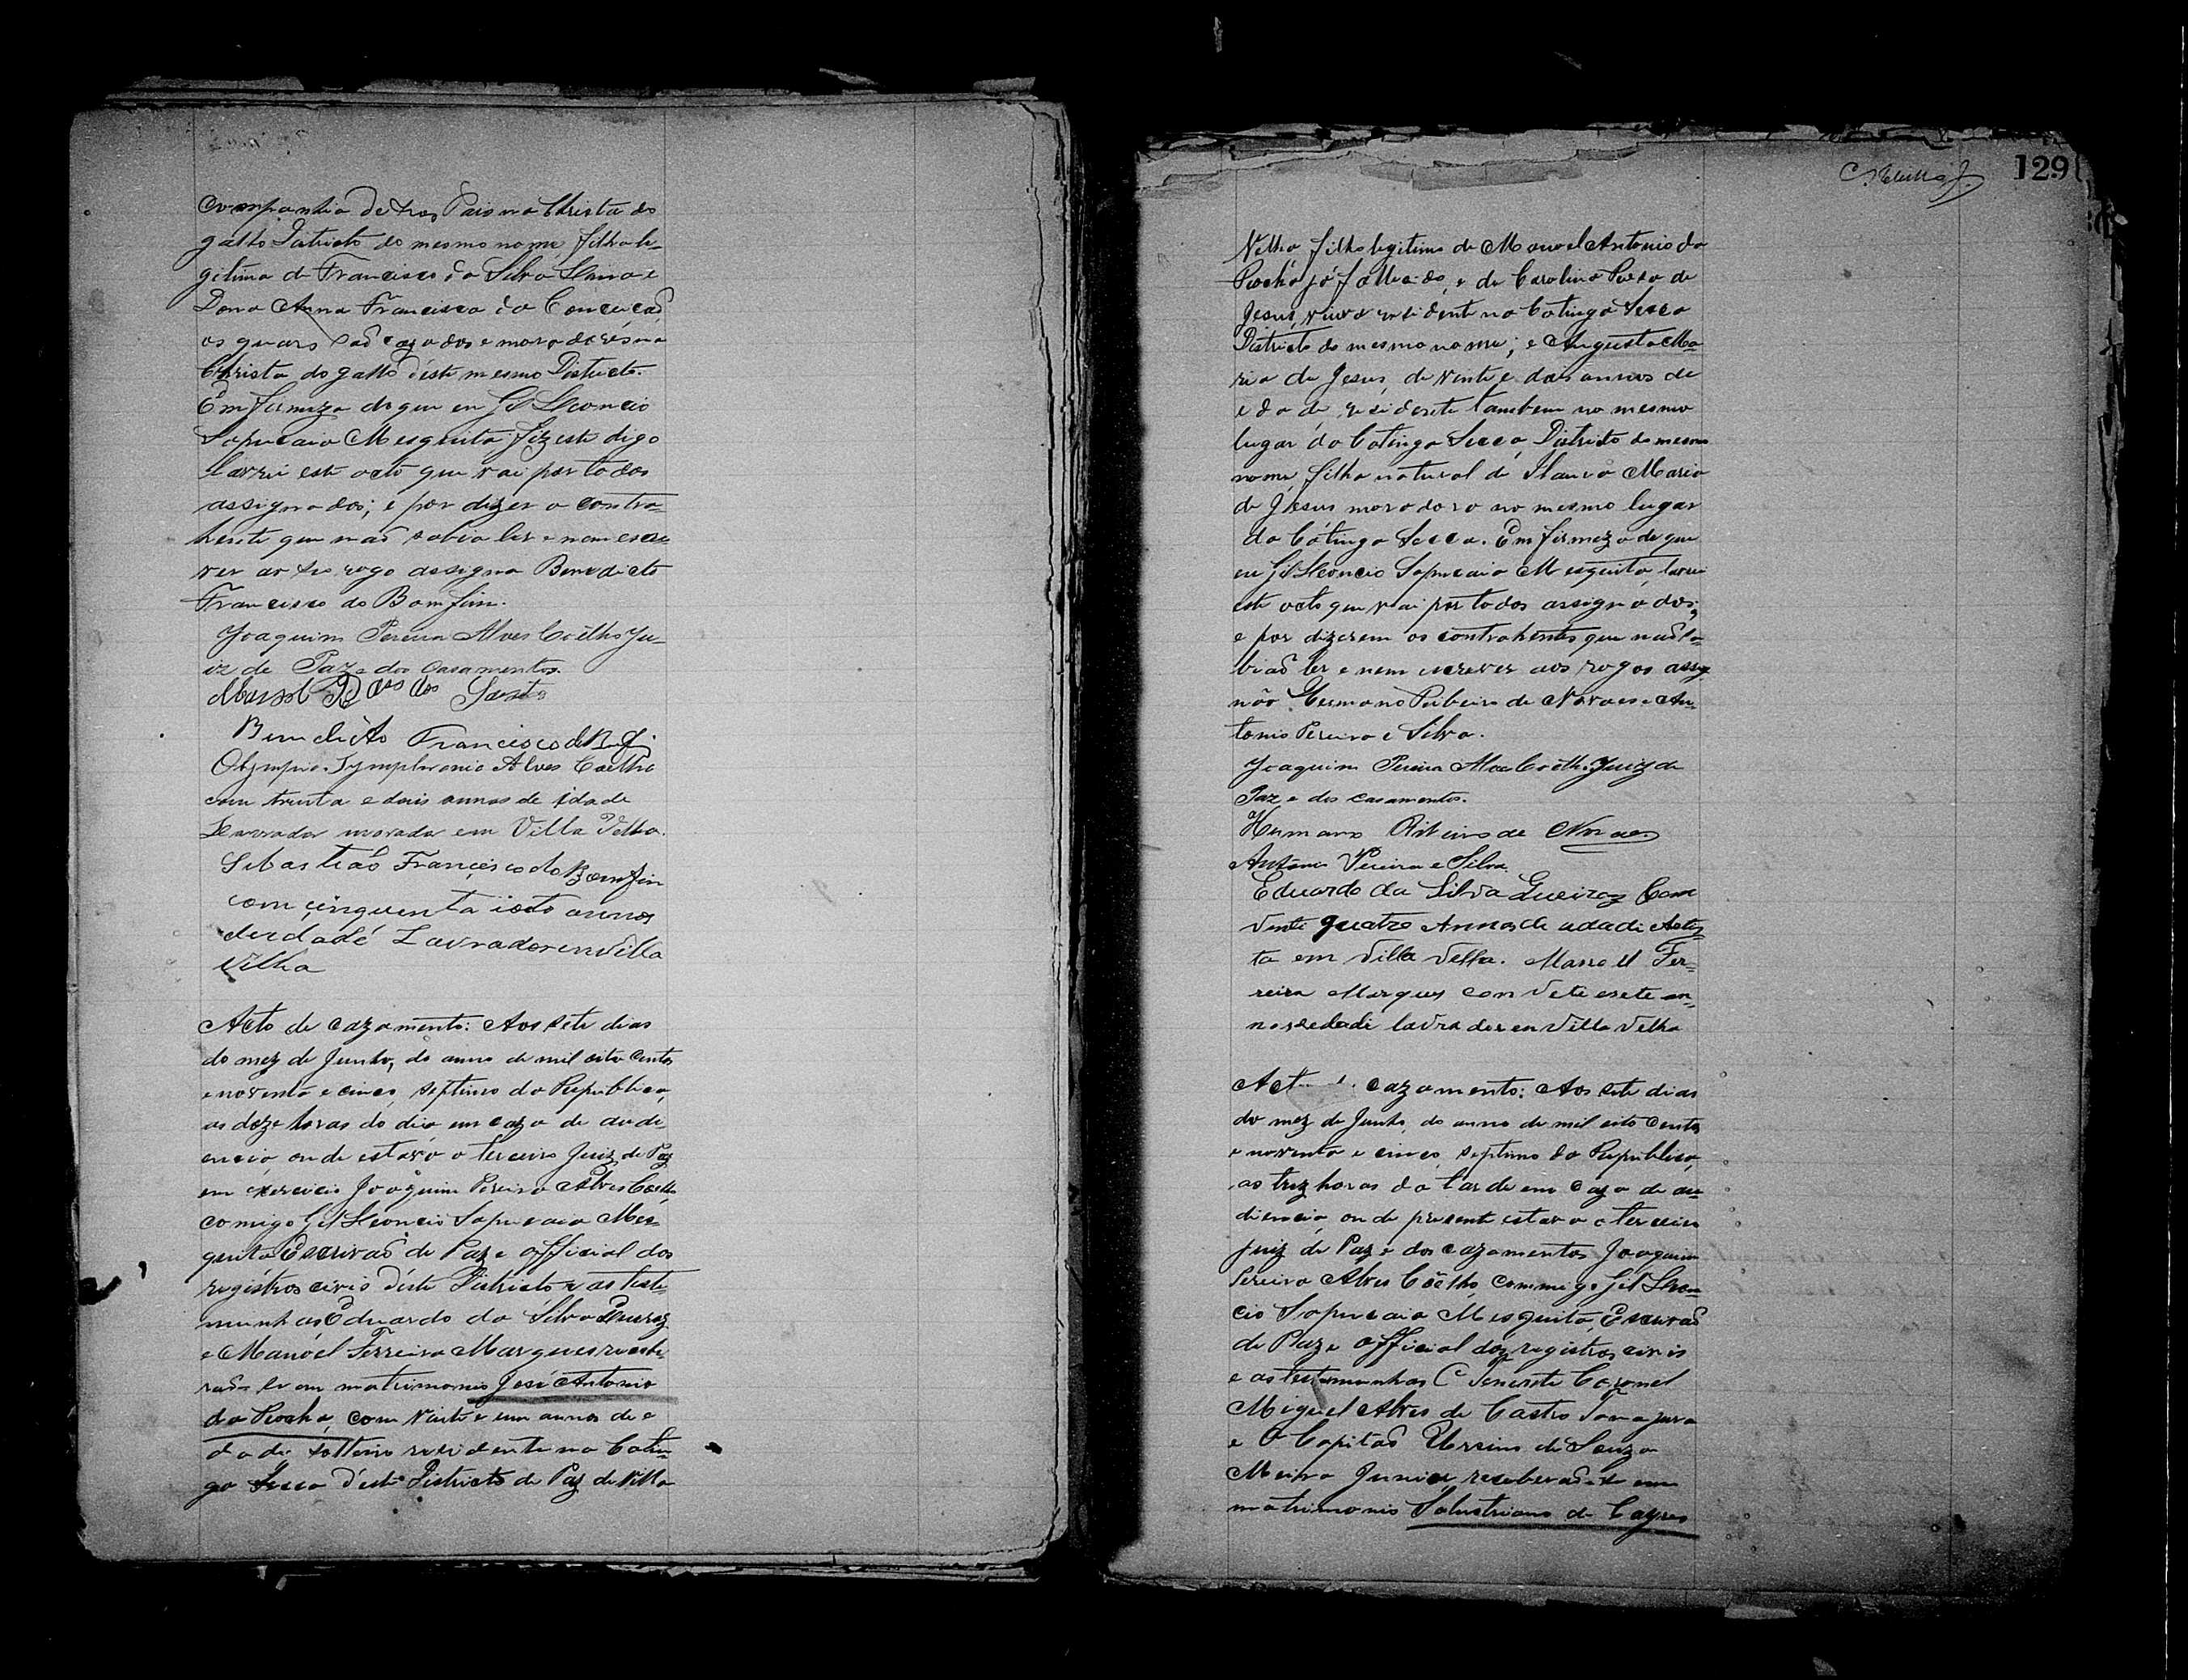 companhia de seus Pais na Christa do
gallo Districto do mesmo nome, filha le-
gitima de Francisco da Silva e
Dona Anna Francisca da Conceicaõ,
os quais saõ cazados e moradores na
Christa do gallo d'este mesmo Districto.
Em firmeza do que eu Gil Leoncio
Sapucaia Mesquita fiz este digo
lavrei este acto que vai por todos
assignados; e por dizer a contra-
hente que naõ sabia ler e nem escre
ver ao seu rogo assigna Benedicto
Francisco do Bomfim.
Joaquim Pereira Alves Coêlho Ju-
iz de Paz e dos casamentos.
Manoel dos Santos
Benedicto Francisco do
Olympio Symphronio Alves Coelho
com trinta e dois annos de idade
Lavrador morador em Villa Velha.
Sebastiaõ Francisco do Bomfin
com cinquenta ioito annos
deidade Lavrador em Villa
Velha
Acto de cazamento: Aos sete dias
do mez de Junho, do anno de mil oito centos
e noventa e cinco, septimo da Republica,
as doze horas do dia em caza de audi
encia, onde estava o terceiro Juiz de Paz
em exercicio Joaquim Pereira Alves Coêlho
comigo Gil Leoncio Sapucaia Mes-
quita Escrivaõ de Paz e official dos
registros civis d'este Districto e as teste
munhas Eduardo da Silva Queiroz
e Manoel Ferreira Marques recebe-
raõ-se em matrimonio José Antonio
da Rocha, com vinte e um annos de e
dade solteiro residente na Catin-
ga Secca d'este Districto de Paz de Villa
129
Velha, filho legitimo de Manoel Antonio da
Rocha já fallecido, e de Carolina Rosa de
Jesus, viuva residente na Catinga Secca
Districto do mesmo nome; e Augusta Ma-
ria de Jesus, de vinte e dois annos de
edade, residente tambem no mesmo
lugar da Catinga Secca, Districto do mesmo
nome, filha natural de Maria
de Jesus moradora no mesmo lugar
da Catinga Secca. Em firmeza do que
eu Gil Leoncio Sapucaia Mesquita, lavrei
este acto que vai por todos assignados;
e por dizerem os contrahentes que naõ sa-
biaõ ler e nem escrever aos rogos assig
não Germano Ribeiro de Novaes e An-
tonio Pereira e Silva.
Joaquim Pereira Alves Coêlho Juiz de
Paz e dos casamentos.
Germano Ribeiro de Novaes
Antonio Pereira e Silva.
Eduardo da Silva Queiroz Com
vente quatro Annos de adade Artis-
ta em Villa Velha. Manoel Fer-
reira Marques com vete esete an-
nos dedade lavrador en Villa Velha
Acto cazamento: Aos sete dias
do mez de Junho, do anno de mil oito centos
e noventa e cinco, septimo da Republica,
as trez horas da tarde em caza de au-
diencia, onde presente estava o terceiro
juiz de Paz e dos cazamentos Joaquim
Pereira Alves Coêlho, commigo Gil Leon-
cio Sapucaia Mesquita, Escrivaõ
de Paz e official dos registros civis
e as testemunhas O Tenente Coronel
Miguel Alves de Castro Tanajura
e O Capitaõ Ursino de Souza
Meira Junior receberaõ-se em
matrimonio Salustiano de Cayres